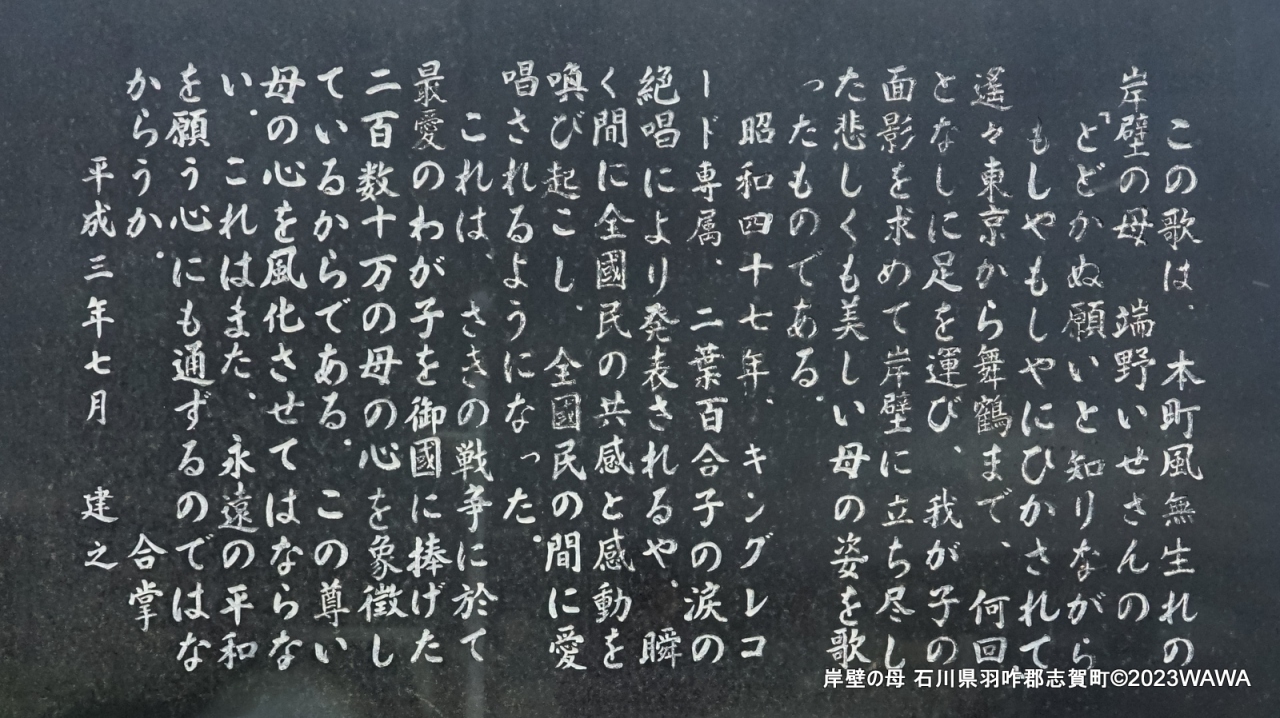 この歌は、本町風無生れの
岸壁の母　端野いせさんの
「とどかぬ願いと知りながら
もしやもしやにひかされて」
遙々東京から舞鶴まで、何回
となしに足を運び、我が子の
面影を求めて岸壁に立ち尽し
た悲しくも美しい母の姿を歌
ったものである。
昭和四十七年、キングレコ
ード専属、二葉百合子の涙の
絶唱により発表されるや、瞬
く間に全國民の共感と感動を
喚び起こし、全國民の間に愛
唱されるようになった。
これは、さきの戦争に於て
最愛のわが子を御國に捧げた
二百数十万の母の心を象徴し
ているからである。この尊い
母の心を風化させてはならな
い。これはまた、永遠の平和
を願う心にも通ずるのではな
からうか。　合掌
平成三年七月　建之
岸壁の母 石川県羽咋郡志賀町©2023WAWA